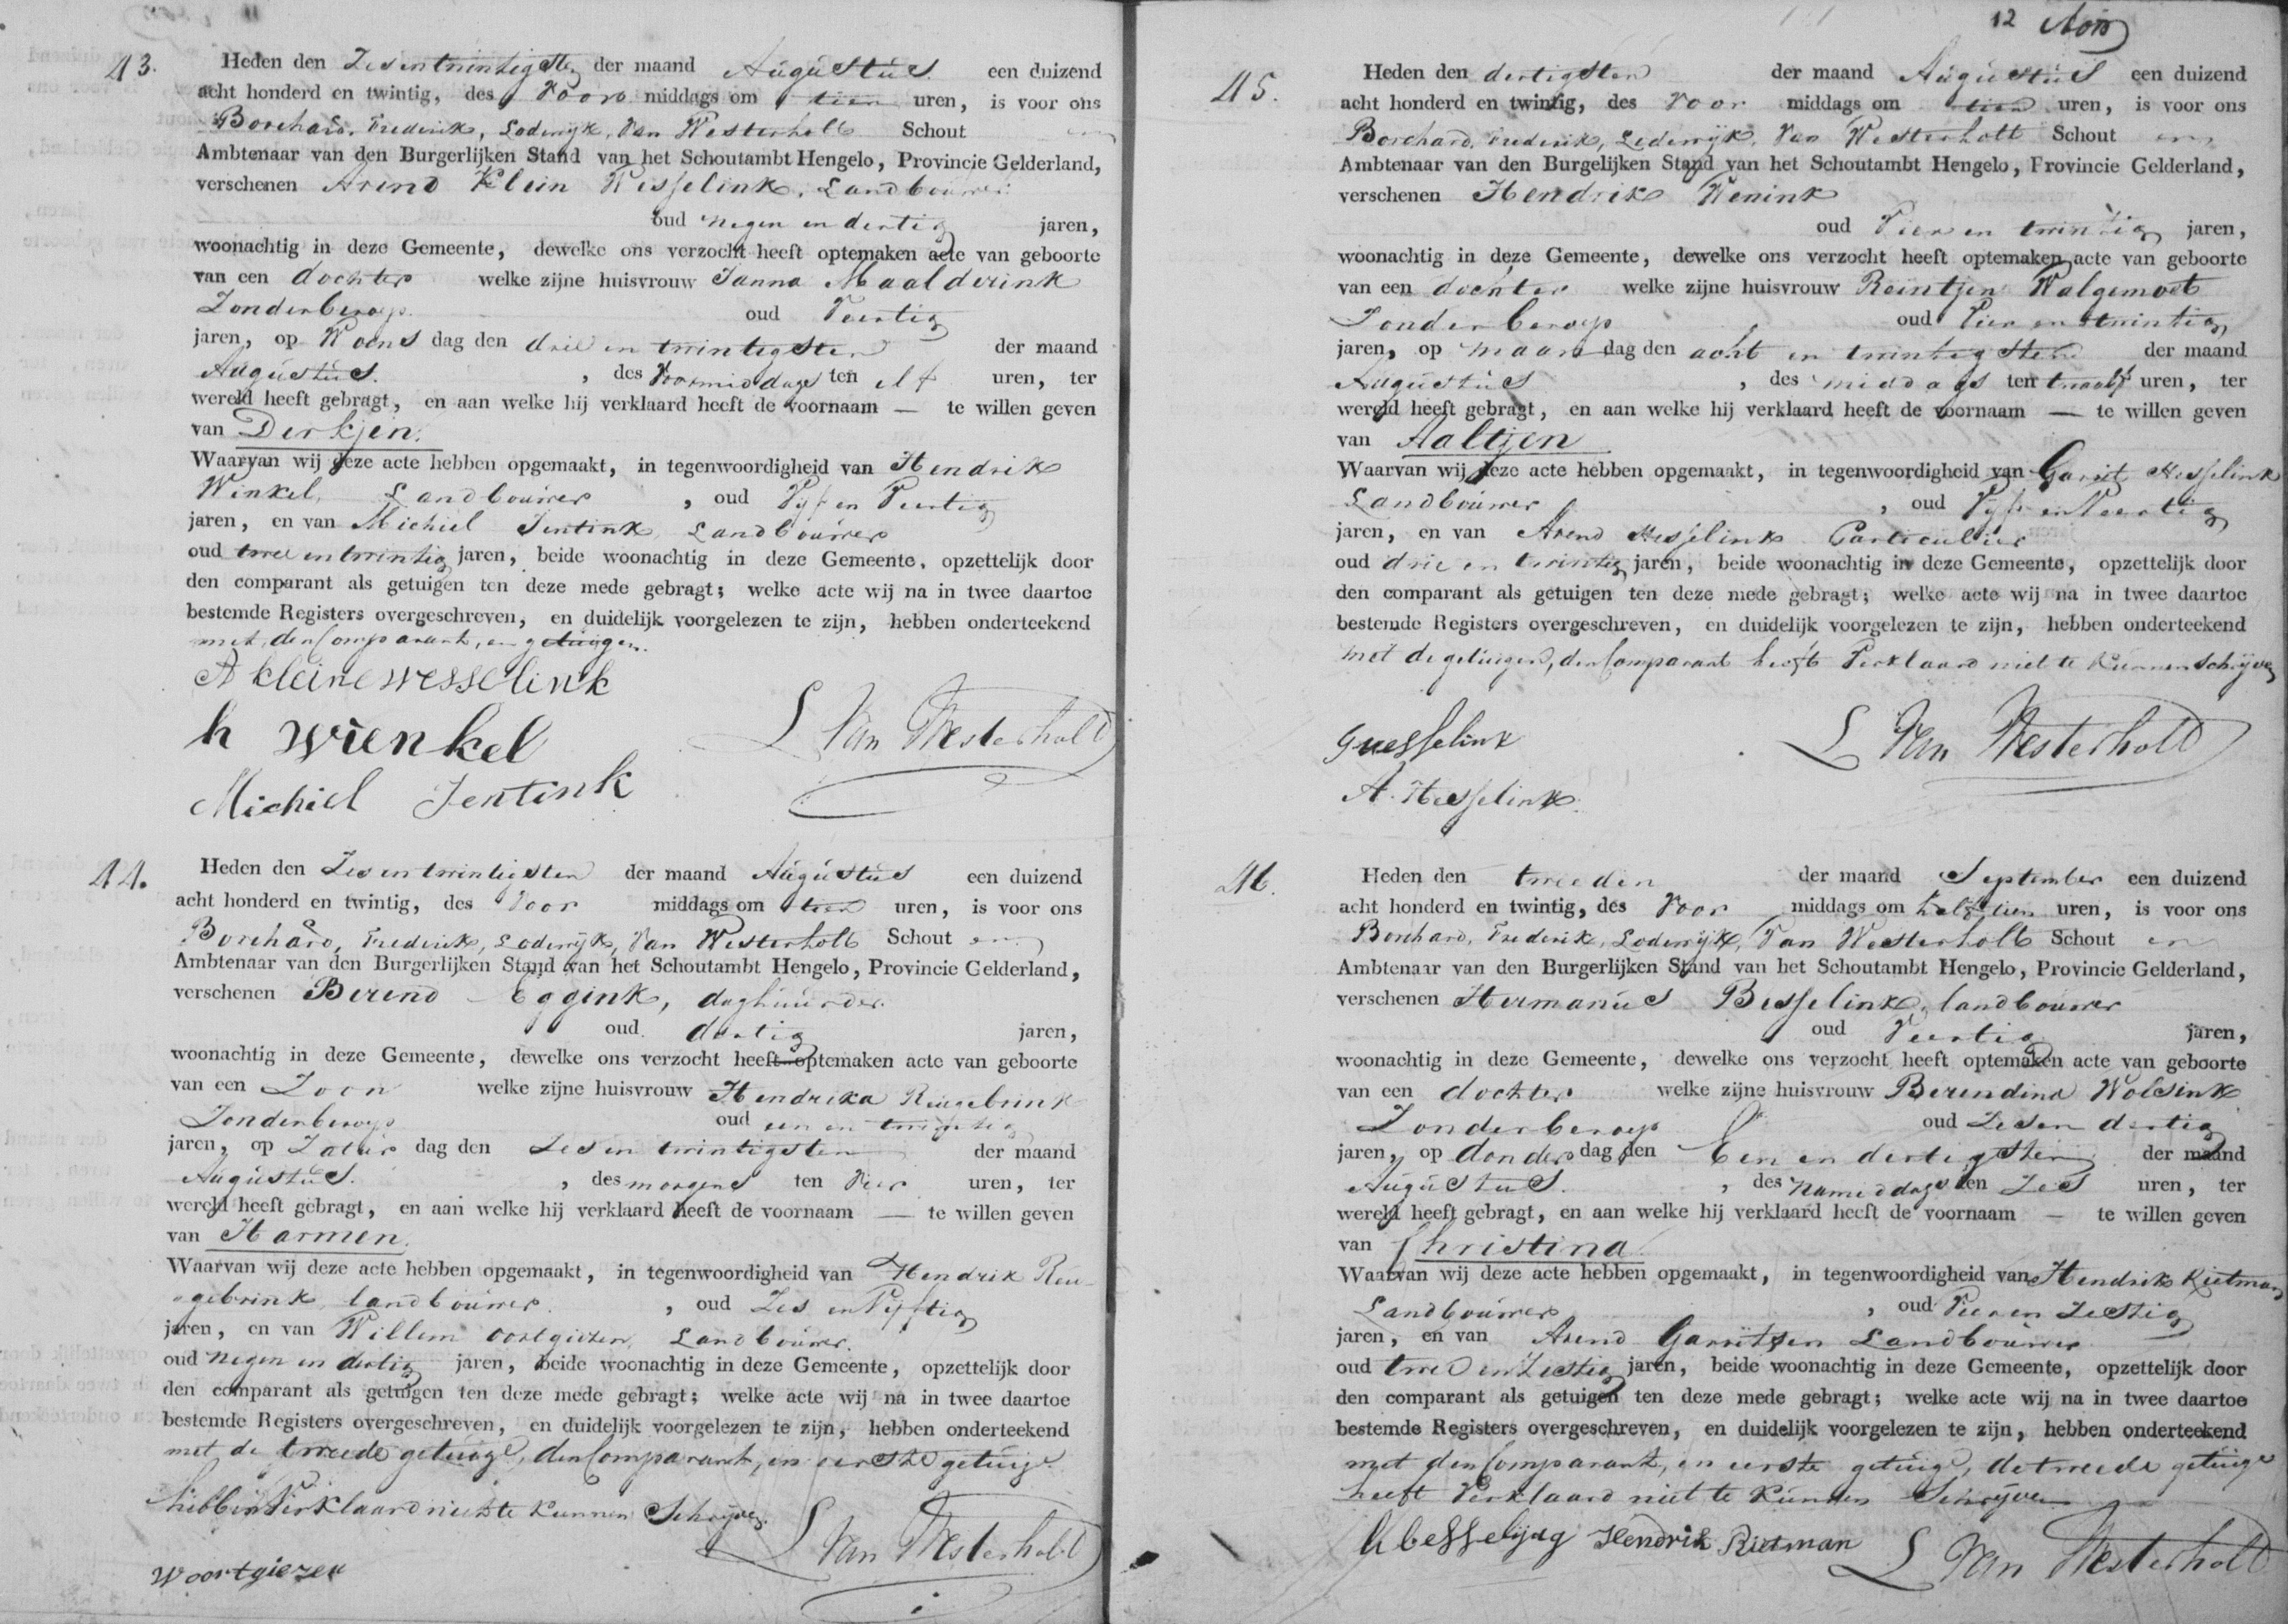 43.
Heden den Zesentwintigsten der maand Augustus. een duizend
acht honderd en twintig, des Voor middags om tien uren, is voor ons
Borchard, Frederik, Lodewijk, Van Westerholt Schout en
Ambtenaar van den Burgerlijken Stand van het Schoutambt Hengelo, Provincie Gelderland,
verschenen Arend Klein Wesselink, Landbouwer
oud negen en dertig jaren,
woonachtig in deze Gemeente, dewelke ons verzocht heeft optemaken acte van geboorte
van een dochter welke zijne huisvrouw Janna Maalderink
Zonderberoep oud Veertig
jaren, op Woens dag den drie en twintigsten der maand
Augustus. , des Voormiddags ten elf uren, ter
wereld heeft gebragt, en aan welke hij verklaard heeft de voornaam — te willen geven
van Derkjen.
Waarvan wij deze acte hebben opgemaakt, in tegenwoordigheid van Hendrik
Winkel, Landbouwer , oud Vyf en Veertig
jaren, en van Michiel Jentink, Landbouwer
oud twee en twintig jaren, beide woonachtig in deze Gemeente, opzettelijk door
den comparant als getuigen ten deze mede gebragt; welke acte wij na in twee daartoe
bestemde Registers overgeschreven, en duidelijk voorgelezen te zijn, hebben onderteekend
met den Comparant, en getuigen.
A kleine wesselink
h wienkel
L Van Westerholt
Michiel Jentink
44.
Heden den Zes en twintigsten der maand Augustus een duizend
acht honderd en twintig, des Voor middags om tien uren, is voor ons
Borchard, Frederik, Lodewijk, Van Westerholt Schout en
Ambtenaar van den Burgerlijken Stand van het Schoutambt Hengelo, Provincie Gelderland,
verschenen Berend Eggink, daghuurder
oud dertig jaren,
woonachtig in deze Gemeente, dewelke ons verzocht heeft optemaken acte van geboorte
van een Zoon welke zijne huisvrouw Hendrika Reugebrink
Zonderberoep oud een en twintig
jaren, op Zatur dag den Zes en twintigsten der maand
Augustus. , des morgens ten Vier uren, ter
wereld heeft gebragt, en aan welke hij verklaard heeft de voornaam — te willen geven
van Harmen.
Waarvan wij deze acte hebben opgemaakt, in tegenwoordigheid van Hendrik Reu
gebrink, landbouwer. , oud Zes en Vyftig
jaren, en van Willem Oortgiezen, Landbouwer.
oud negen en dertig jaren, beide woonachtig in deze Gemeente, opzettelijk door
den comparant als getuigen ten deze mede gebragt; welke acte wij na in twee daartoe
bestemde Registers overgeschreven, en duidelijk voorgelezen te zijn, hebben onderteekend
met de tweede getuige, den Comparant, en eerste getuige
hebben Verklaard niet te Kunnen Schryven.
L Van Westerholt
W oortgiezen
12
45.
Heden den dertigsten der maand Augustus een duizend
acht honderd en twintig, des Voor middags om tien uren, is voor ons
Borchard, Frederik, Lodewijk, Van Westerholt Schout en
Ambtenaar van den Burgelijken Stand van het Schoutambt Hengelo, Provincie Gelderland,
verschenen Hendrik Wenink
oud Vier en twintig jaren,
woonachtig in deze Gemeente, dewelke ons verzocht heeft optemaken acte van geboorte
van een dochter welke zijne huisvrouw Reintjen Walgemoet
Zonderberoep oud Vier en twintig
jaren, op maan dag den acht en twintigsten der maand
Augustus , des middags ten twaalf uren, ter
wereld heeft gebragt, en aan welke hij verklaard heeft de voornaam — te willen geven
van Aaltjen
Waarvan wij deze acte hebben opgemaakt, in tegenwoordigheid van Garrit Hesselink
Landbouwer , oud Vyf en Veertig
jaren, en van Arend Hesselink Particulier
oud drie en twintig jaren, beide woonachtig in deze Gemeente, opzettelijk door
den comparant als getuigen ten deze mede gebragt; welke acte wij na in twee daartoe
bestemde Registers overgeschreven, en duidelijk voorgelezen te zijn, hebben onderteekend
met de getuigen, den Comparant heeft Verklaard niet te Kunnen Schryven
L Van Westerholt
A. Hesselink.
46.
Heden den tweeden der maand September een duizend
acht honderd en twintig, des Voor middags om half tien uren, is voor ons
Borchard, Frederik, Lodewijk, Van Westerholt Schout en
Ambtenaar van den Burgerlijken Stand van het Schoutambt Hengelo, Provincie Gelderland,
verschenen Hermanus Besselink, landbouwer
oud Veertig jaren,
woonachtig in deze Gemeente, dewelke ons verzocht heeft optemaken acte van geboorte
van een dochter welke zijne huisvrouw Berendina Wolsink
Zonderberoep oud Zes en dertig
jaren, op donder dag den Een en dertigsten der maand
Augustus. , des namiddags ten Zes uren, ter
wereld heeft gebragt, en aan welke hij verklaard heeft de voornaam — te willen geven
van Christina
Waarvan wij deze acte hebben opgemaakt, in tegenwoordigheid van Hendrik Rietman
Landbouwer , oud Vier en Zestig
jaren, en van Arend Garritsen Landbouwer
oud twee en Zestig jaren, beide woonachtig in deze Gemeente, opzettelijk door
den comparant als getuigen ten deze mede gebragt; welke acte wij na in twee daartoe
bestemde Registers overgeschreven, en duidelijk voorgelezen te zijn, hebben onderteekend
met den Comparant, en eerste getuige, de tweede getuige
heeft Verklaard niet te Kunnen Schryven
Hendrik Rietman L Van Westerholt